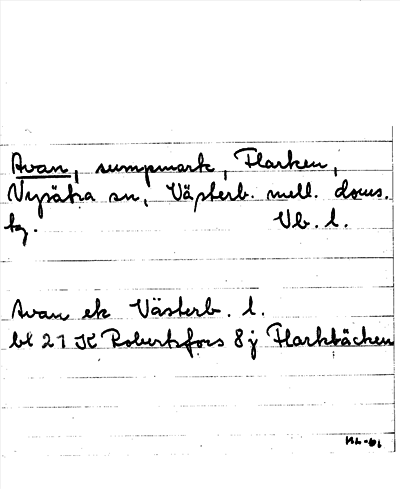 Avan, sumpmark, Flarken,
Nysätra sn, Västerb. mell. doms.
tg. Vb. l.
Avan ek Västerb. l.
bl 21 K Robertsfors 8j Flarkbäcken